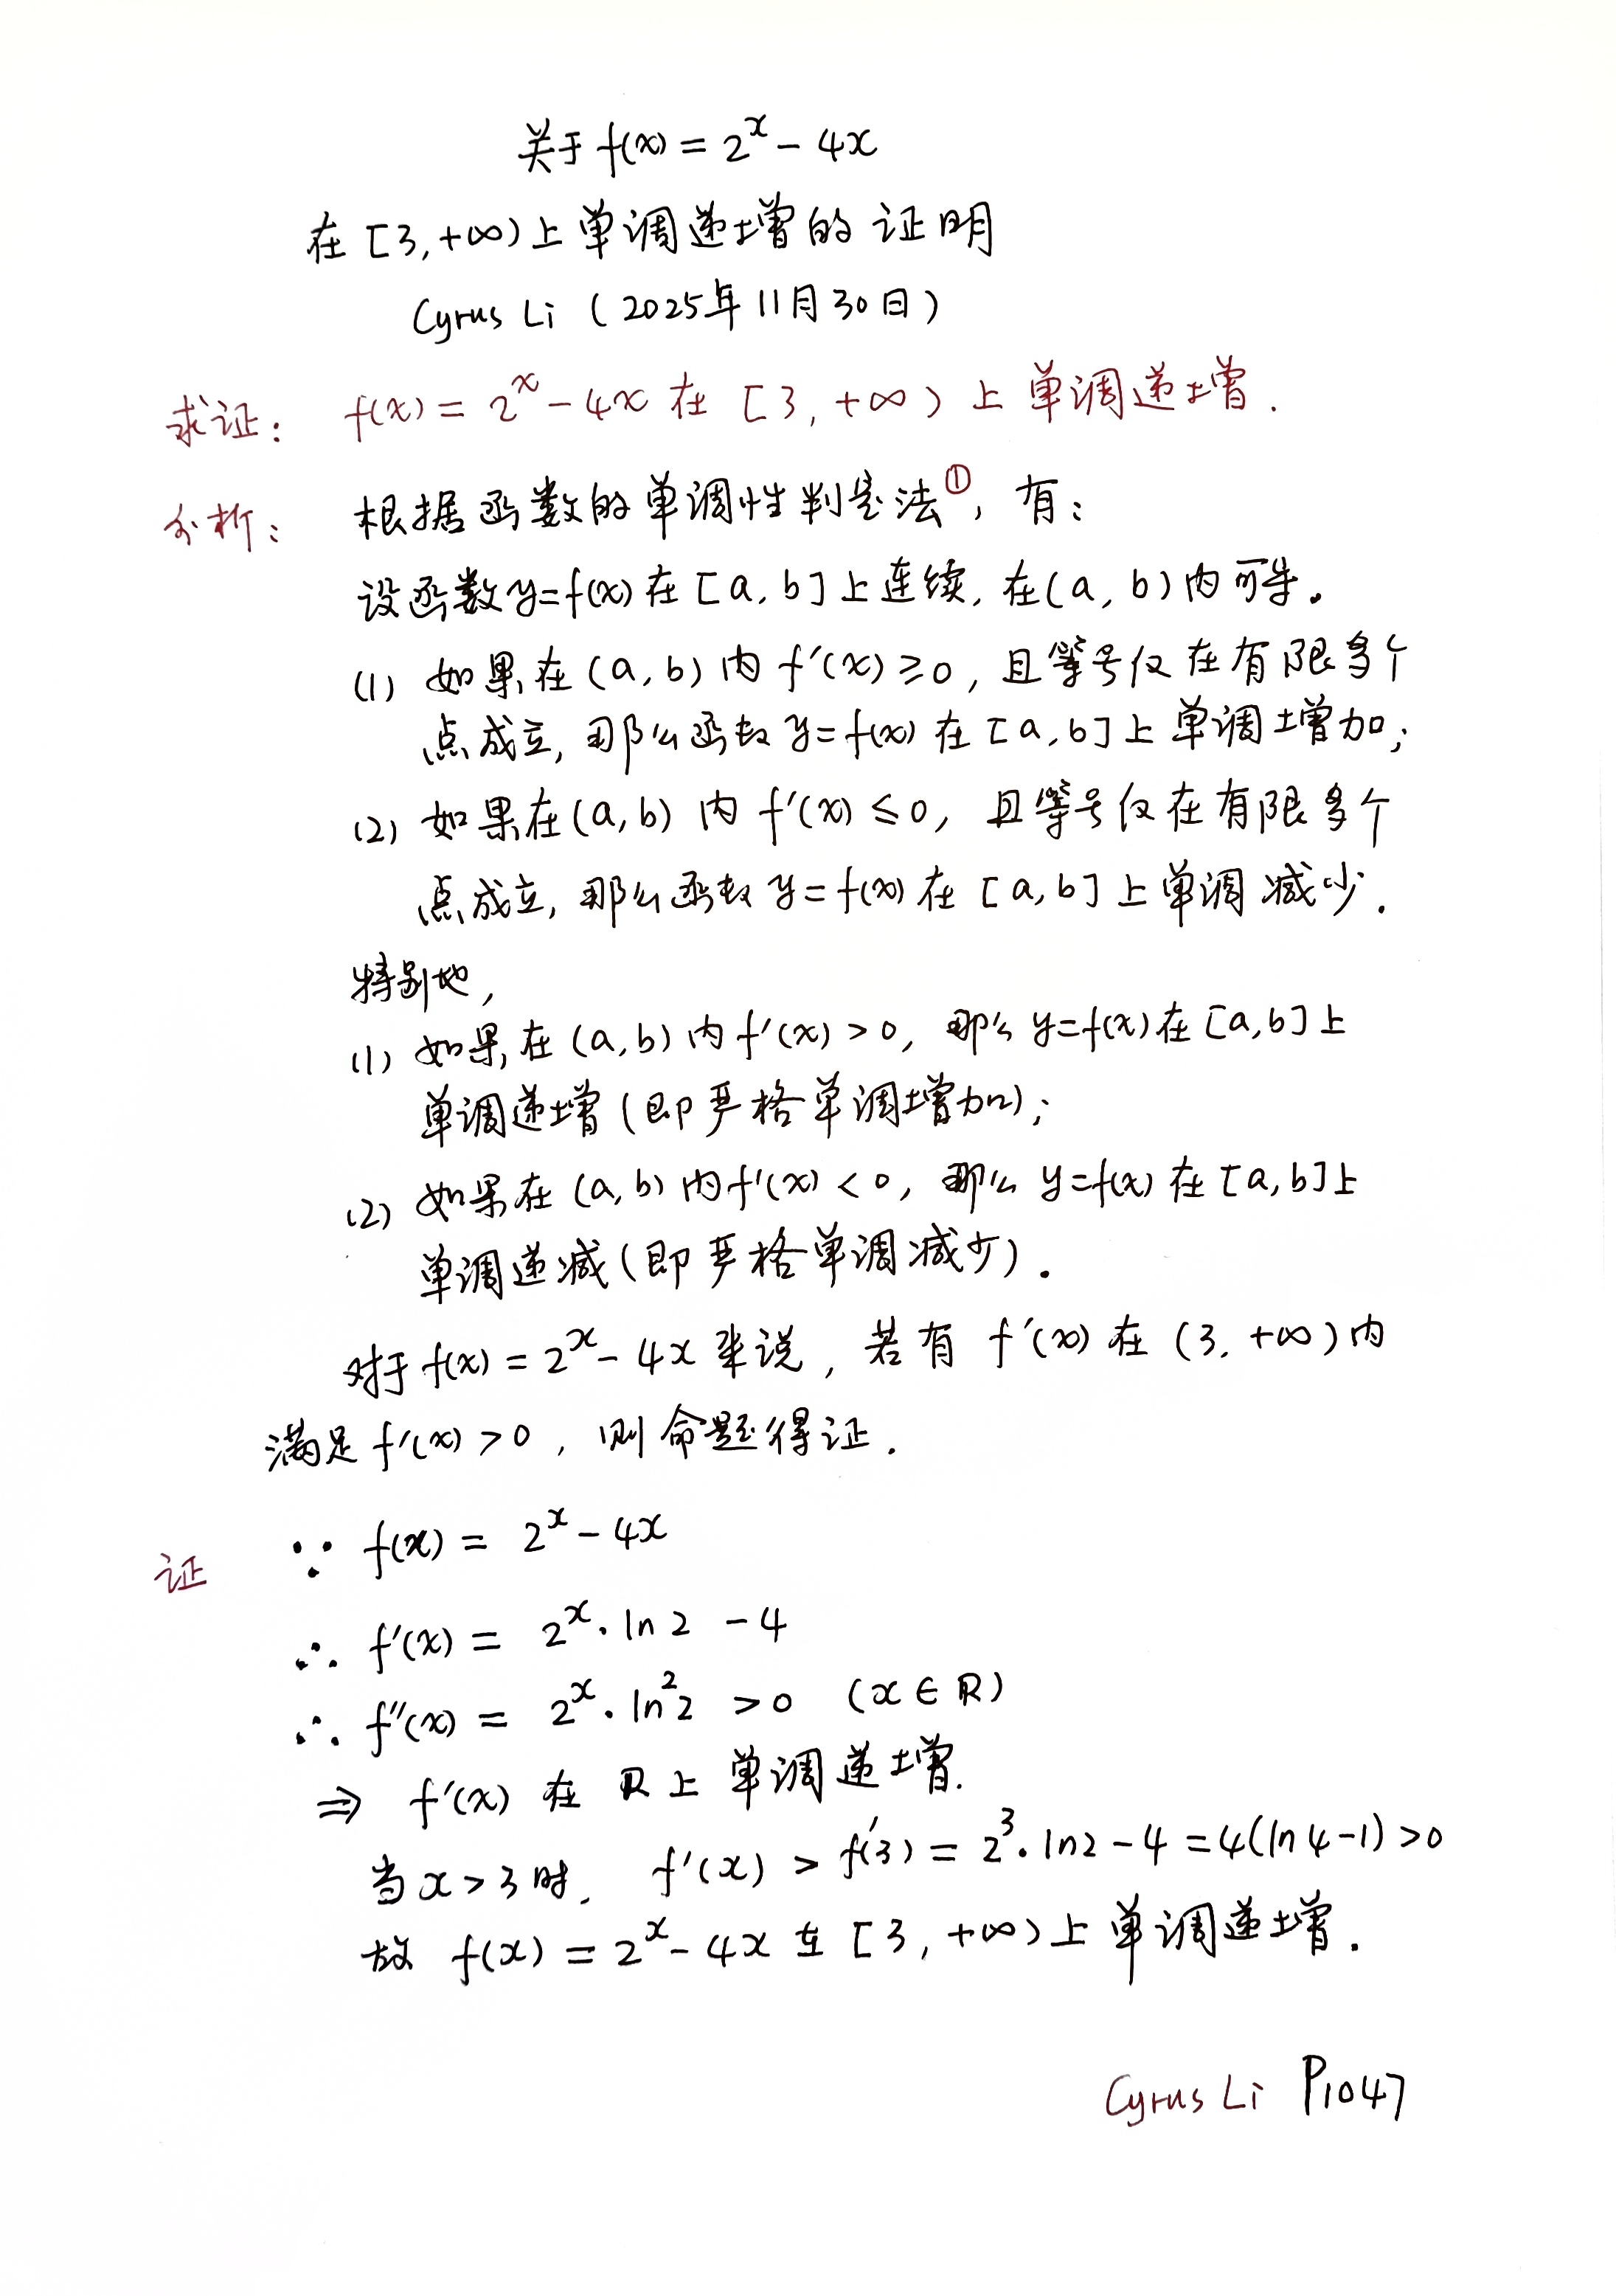 关于 f(x) = 2^x - 4x
在 [3, +∞) 上单调递增的证明
Cyrus Li (2025年11月30日)
求证: f(x) = 2^x - 4x 在 [3, +∞) 上单调递增.
分析: 根据函数的单调性判定法①, 有:
设函数 y=f(x) 在 [a, b] 上连续, 在 (a, b) 内可导。
(1) 如果在 (a, b) 内 f'(x) ≥ 0, 且等号仅在有限多个
点成立, 那么函数 y = f(x) 在 [a, b] 上单调增加;
(2) 如果在 (a, b) 内 f'(x) ≤ 0, 且等号仅在有限多个
点成立, 那么函数 y = f(x) 在 [a, b] 上单调减少.
特别地,
(1) 如果在 (a, b) 内 f'(x) > 0, 那么 y=f(x) 在 [a, b] 上
单调递增 (即严格单调增加);
(2) 如果在 (a, b) 内 f'(x) < 0, 那么 y=f(x) 在 [a, b] 上
单调递减 (即严格单调减少).
对于 f(x) = 2^x - 4x 来说, 若有 f'(x) 在 (3, +∞) 内
满足 f'(x) > 0, 则命题得证.
证 ∵ f(x) = 2^x - 4x
∴ f'(x) = 2^x · ln 2 - 4
∴ f''(x) = 2^x · ln²2 > 0 (x ∈ ℝ)
⇒ f'(x) 在 ℝ 上单调递增.
当 x > 3 时, f'(x) > f'(3) = 2³ · ln2 - 4 = 4(ln4 - 1) > 0
故 f(x) = 2^x - 4x 在 [3, +∞) 上单调递增.
Cyrus Li P1047